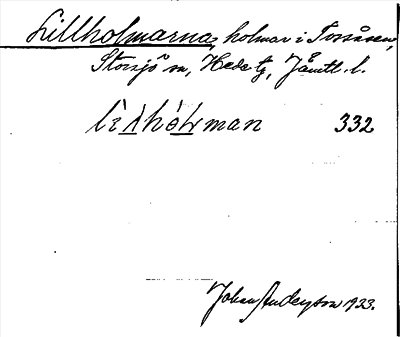 Lillholmarna, holmar i Torråsen,
Storsjö sn, Hede tg, Jämtl. l.
332
Johan Anderson 1933.